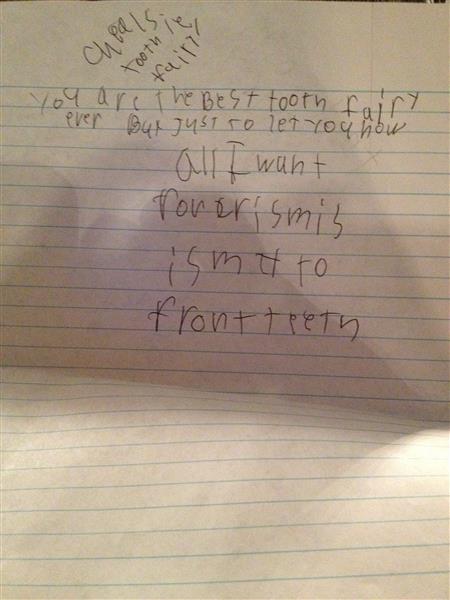 tooth ie
fairy
You are the Best tooth fairy
ever But Just to let you now
all I want
for crismis
is m to
front teeth